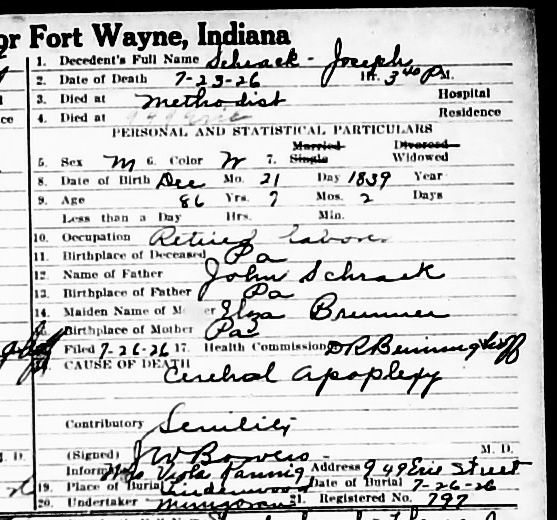 or Fort Wayne, Indiana
1. Decedent's Full Name Schrack - Joseph
2. Date of Death 7-23-26 Hr. 3 40 P M.
3. Died at Methodist Hospital
4. Died at Residence
PERSONAL AND STATISTICAL PARTICULARS
Married Divorced
5. Sex M 6. Color W 7. Single Widowed
8. Date of Birth Dec Mo. 21 Day 1839 Year
9. Age 86 Yrs. 7 Mos. 2 Days
Less than a Day Hrs. Min.
10. Occupation Retired Labor
11. Birthplace of Deceased Pa
12. Name of Father John Schrack
13. Birthplace of Father Pa
14. Maiden Name of Mother Eliza Brunner
Birthplace of Mother Pa
Filed 7-26-26 17. Health Commission
CAUSE OF DEATH
Cerebral Apoplexy
Contributory Senility
(Signed) J W Bowers M. D.
Inform Mrs Viola Rannig Address 949 Erie Street
19. Place of Burial Lindenwood Date of Burial 7-26-26
20. Undertaker 21. Registered No. 797